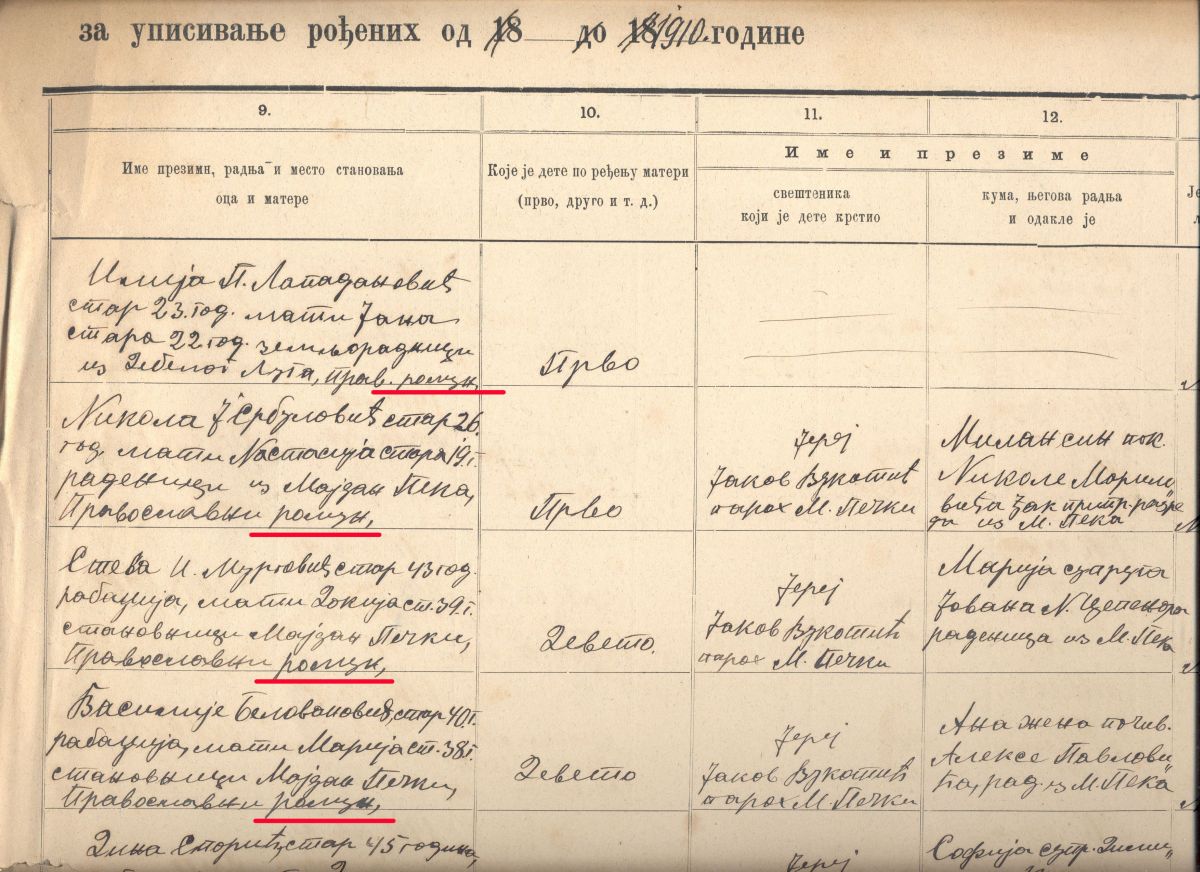 за уписивање рођених од 18 до 18 1910. године
9.
10.
11.
12.
Име презимн, радња и место становања
оца и матере
Које је дете по ређењу матери
(прво, друго и т. д.)
Име и презиме
свештеника
који је дете крстио
кума, његова радња
и одакле је
Је
Илија П. Лападановић
стар 23. год. мати Јана
стара 22 год. земљорадници
из Дебелог Луга, прав. ромун,
Прво
Никола Ј Србуловић стар 26.
год. мати Настасија стара 19. г.
раденици из Мајдан Пека,
Православни ромун,
Прво
Јереј
Јаков Вукотић
парох М. Печки
Милан син пок.
Николе
из М. Пека
Стева И. Муртовић, стар 43 год.
рабаџија, мати Докија ст. 39. г.
становници Мајдан Печки,
Православни ромун,
Девето.
Јереј
Јаков Вукотић
парох М. Печки
Марија супруга
Јована Н.
раденица из М. Пека
Василије Беловановић, стар 40. г.
рабаџија, мати Марија ст. 38 г.
становници Мајдан Печки,
Православни ромун,
Девето
Јереј
Јаков Вукотић
парох М. Печки
Ана жена почив.
Алексе Павлови
ћа, рад. из М. Пека
стар 45 година,
Јереј
Софија супр.